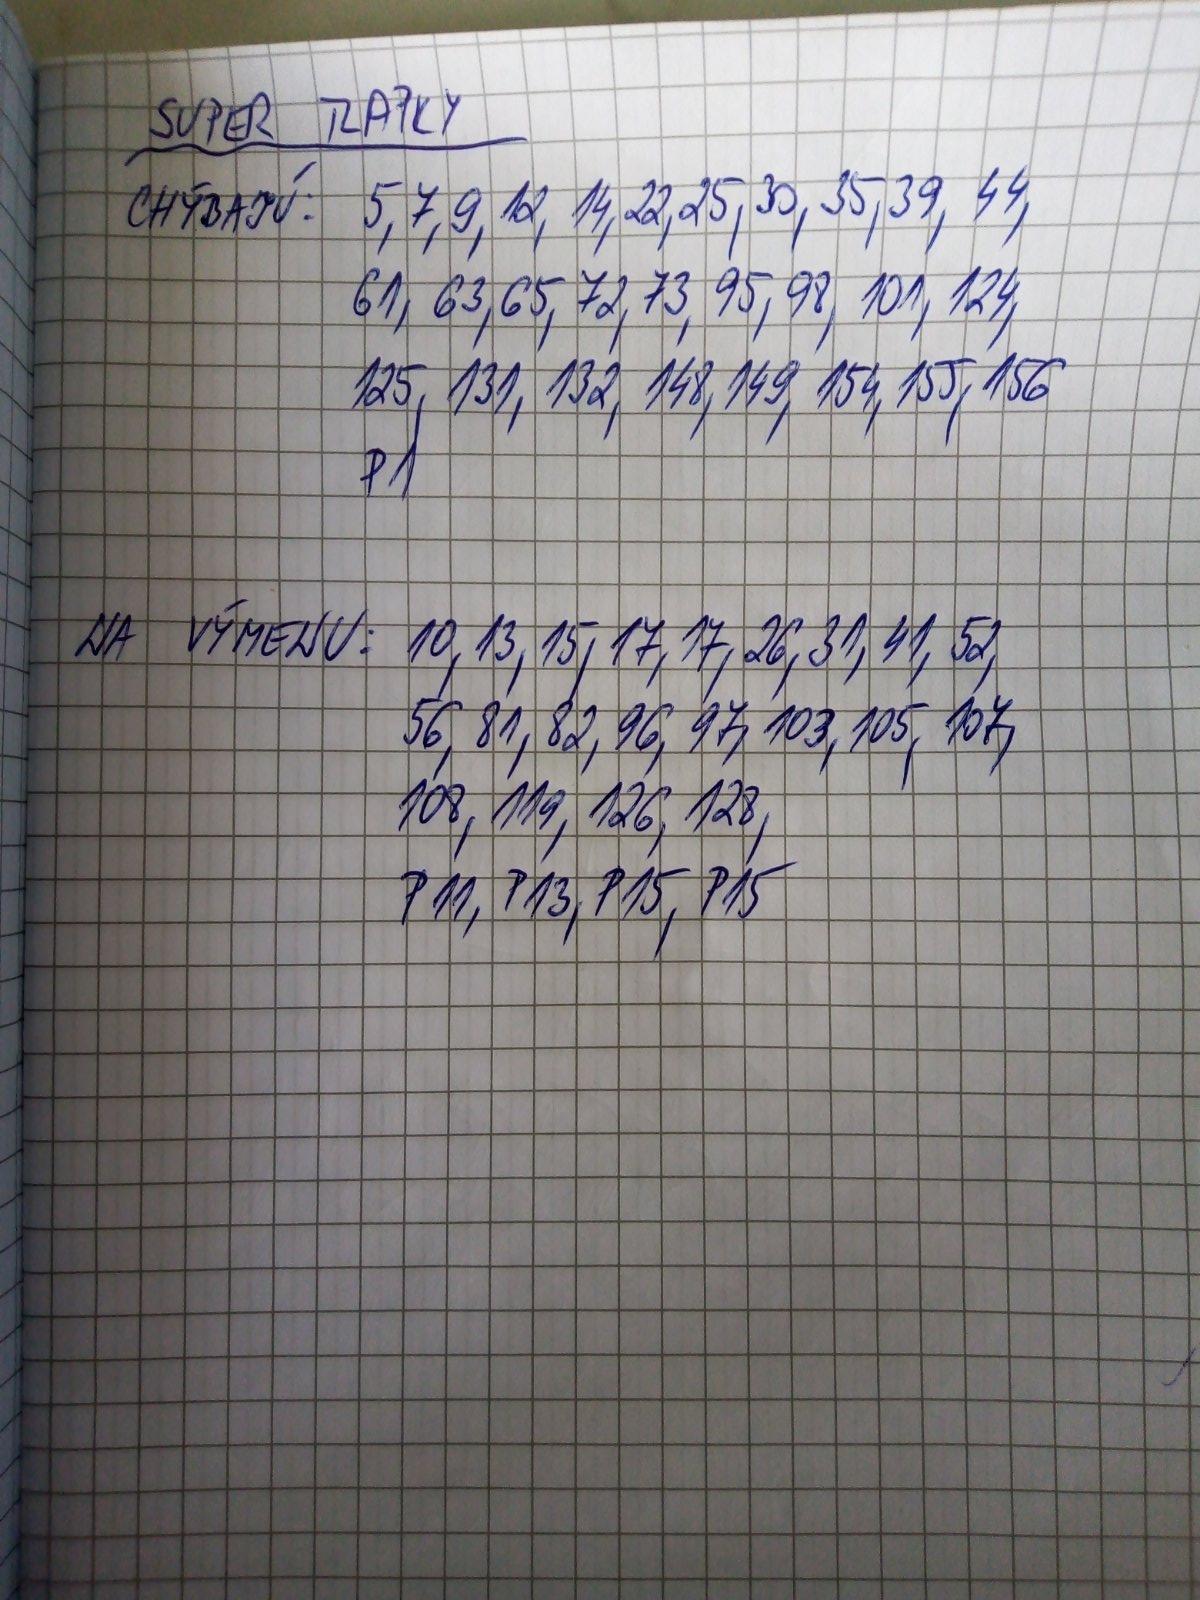 SUPER TLAPKY
CHÝBAJÚ: 5, 7, 9, 12, 14, 22, 25, 30, 35, 39, 44,
61, 63, 65, 72, 73, 95, 98, 101, 124,
125, 131, 132, 148, 149, 154, 155, 156
P1
NA VÝMENU: 10, 13, 15, 17, 17, 26, 31, 41, 52,
56, 81, 82, 96, 97, 103, 105, 107,
108, 119, 126, 128,
P11, P13, P15, P15